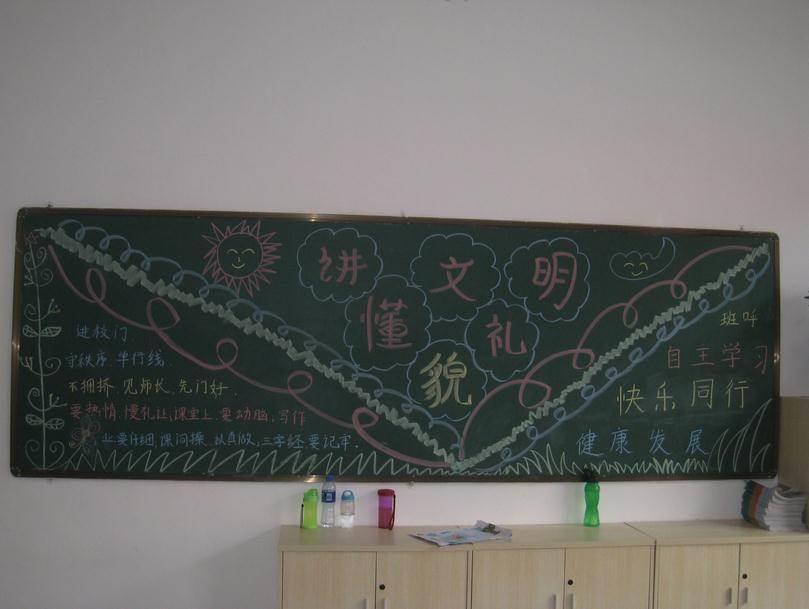 讲文明
懂礼貌
进校门
守秩序.单行线.
不拥挤.见师长.先门好.
要热情.慢礼让,课堂上.要动脑.写作
业要仔细.课间操.认真做.三字经要记牢.
班呼
自主学习
快乐同行
健康发展